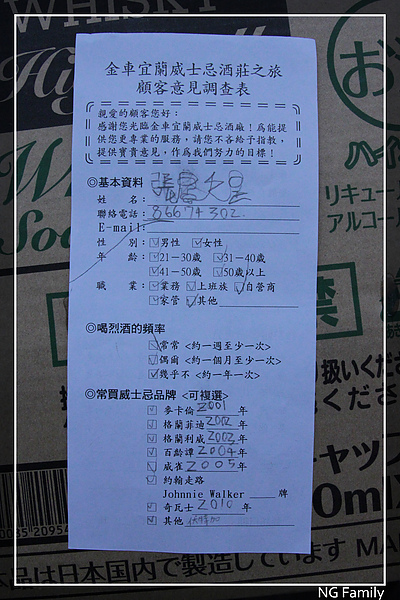 WHISKY
High
お
Wh
Soda
ハイ
リキュー
アルコール
禁
り扱いくださ
ください
ーャップ
0ml
0035 20954
品は日本国内で製造しています MA
金車宜蘭威士忌酒莊之旅
顧客意見調查表
親愛的顧客您好：
感謝您光臨金車宜蘭威士忌酒廠！為能提
供您更專業的服務，請您不吝給予指教，
提供寶貴意見，作為我們努力的目標！
◎基本資料
姓 名：
聯絡電話：86674302.
E-mail:
性 別：☑男性 ☑女性
年 齡：☑21－30歲 ☑31－40歲
☑41－50歲 ☑50歲以上
職 業：☑業務 ☑上班族 ☑自營商
☑家管 ☑其他
◎喝烈酒的頻率
☑常常 <約一週至少一次>
☑偶爾 <約一個月至少一次>
☑幾乎不 <約一年一次>
◎常買威士忌品牌 <可複選>
☑ 麥卡倫 2001 年
☑ 格蘭菲迪 2002 年
☑ 格蘭利威 2003 年
☑ 百齡譚 2004 年
☑ 威雀 2005 年
☑ 約翰走路
Johnnie Walker ____ 牌
☑ 奇瓦士 2010 年
☑ 其他 伏特加
NG Family